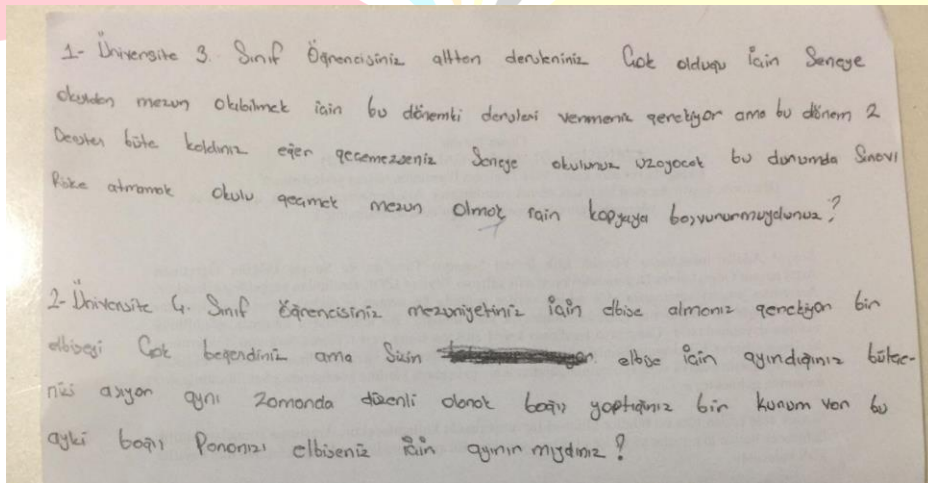 1- Üniversite 3. Sınıf Öğrencisiniz alttan dersleriniz Çok olduğu için Seneye
okuldan mezun olabilmek için bu dönemki dersleri vermeniz gerekiyor ama bu dönem 2
Dersten büte kaldınız eğer geçemezseniz Seneye okulunuz uzayacak bu durumda Sınavı
Riske atmamak okulu geçmek mezun olmak için kopyaya başvururmuydunuz?
2- Üniversite 4. Sınıf Öğrencisiniz mezuniyetiniz için elbise almanız gerekiyor bir
elbiseyi Çok beğendiniz ama Sizin elbise için ayırdığınız bütçe-
nizi aşıyor aynı zamanda düzenli olarak bağış yaptığınız bir kurum var bu
ayki bağış Paranızı elbiseniz için ayırır mıydınız?